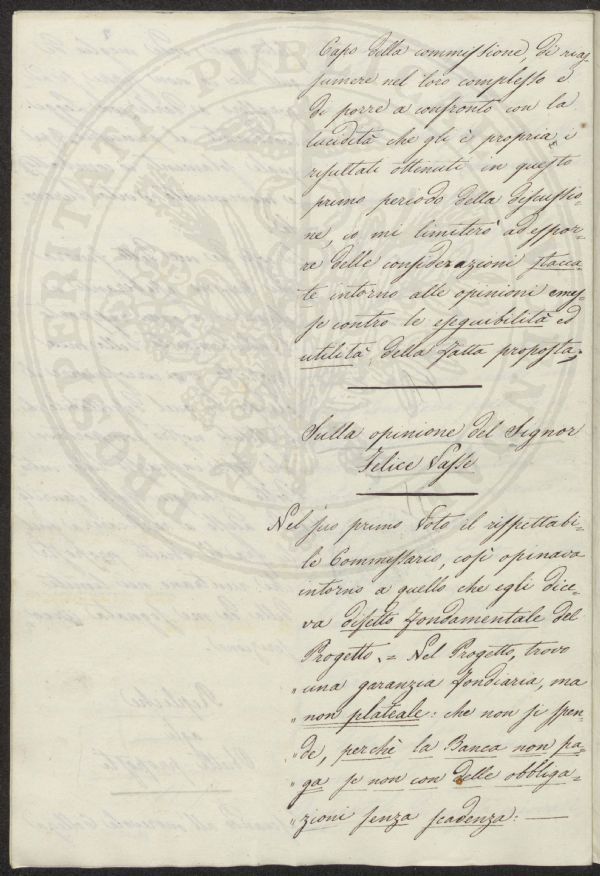 Capo della commissione, di rias-
sumere nel loro complesso e
di porre a confronto con la
lucidità che gli è propria, i
risultati ottenuti in questo
primo periodo della discussio-
ne, io mi limiterò ad espor-
re delle considerazioni stacca-
te intorno alle opinioni emes-
se contro le eseguibilità ed
utilità, della fatta proposta;
Sulla opinione del Signor
Felice Vasse
Nel suo primo Voto il rispettabi-
le Commissario, così opinava
intorno a quello che egli dice-
va difetto fondamentale del
Progetto. = Nel Progetto, trovo
" una garanzia fondiaria, ma
" non plateale: che non si spen-
" de, perchè la Banca non pa-
" ga se non con delle obbliga-
" zioni senza scadenza: